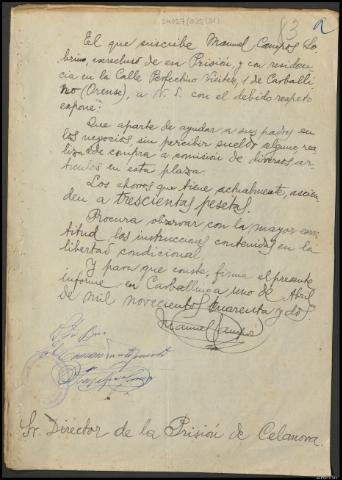 83
El que suscribe Manuel Campos Lo
brino, exrecluso de esa Prisión, y con residen
cia en la Calle 1 de Carballi
ño (Orense), a V. S. con el debido respeto
expone:
Que aparte de ayudar a sus padres en
los negocios, sin percibir sueldo alguno rea
liza de compra a comisión de diversos ar-
tículos en esta plaza.
Los ahorros que tiene actualmente, ascien
den a trescientas pesetas.
Procura observar con la mayor exac
titud las instrucciones contenidas en la
libertad condicional.
Y para que conste, firma el presente
informe en Carballino a uno de Abril
de mil novecientos cuarenta y dos.
Manuel Campos
Sr. Director de la Prisión de Celanova.